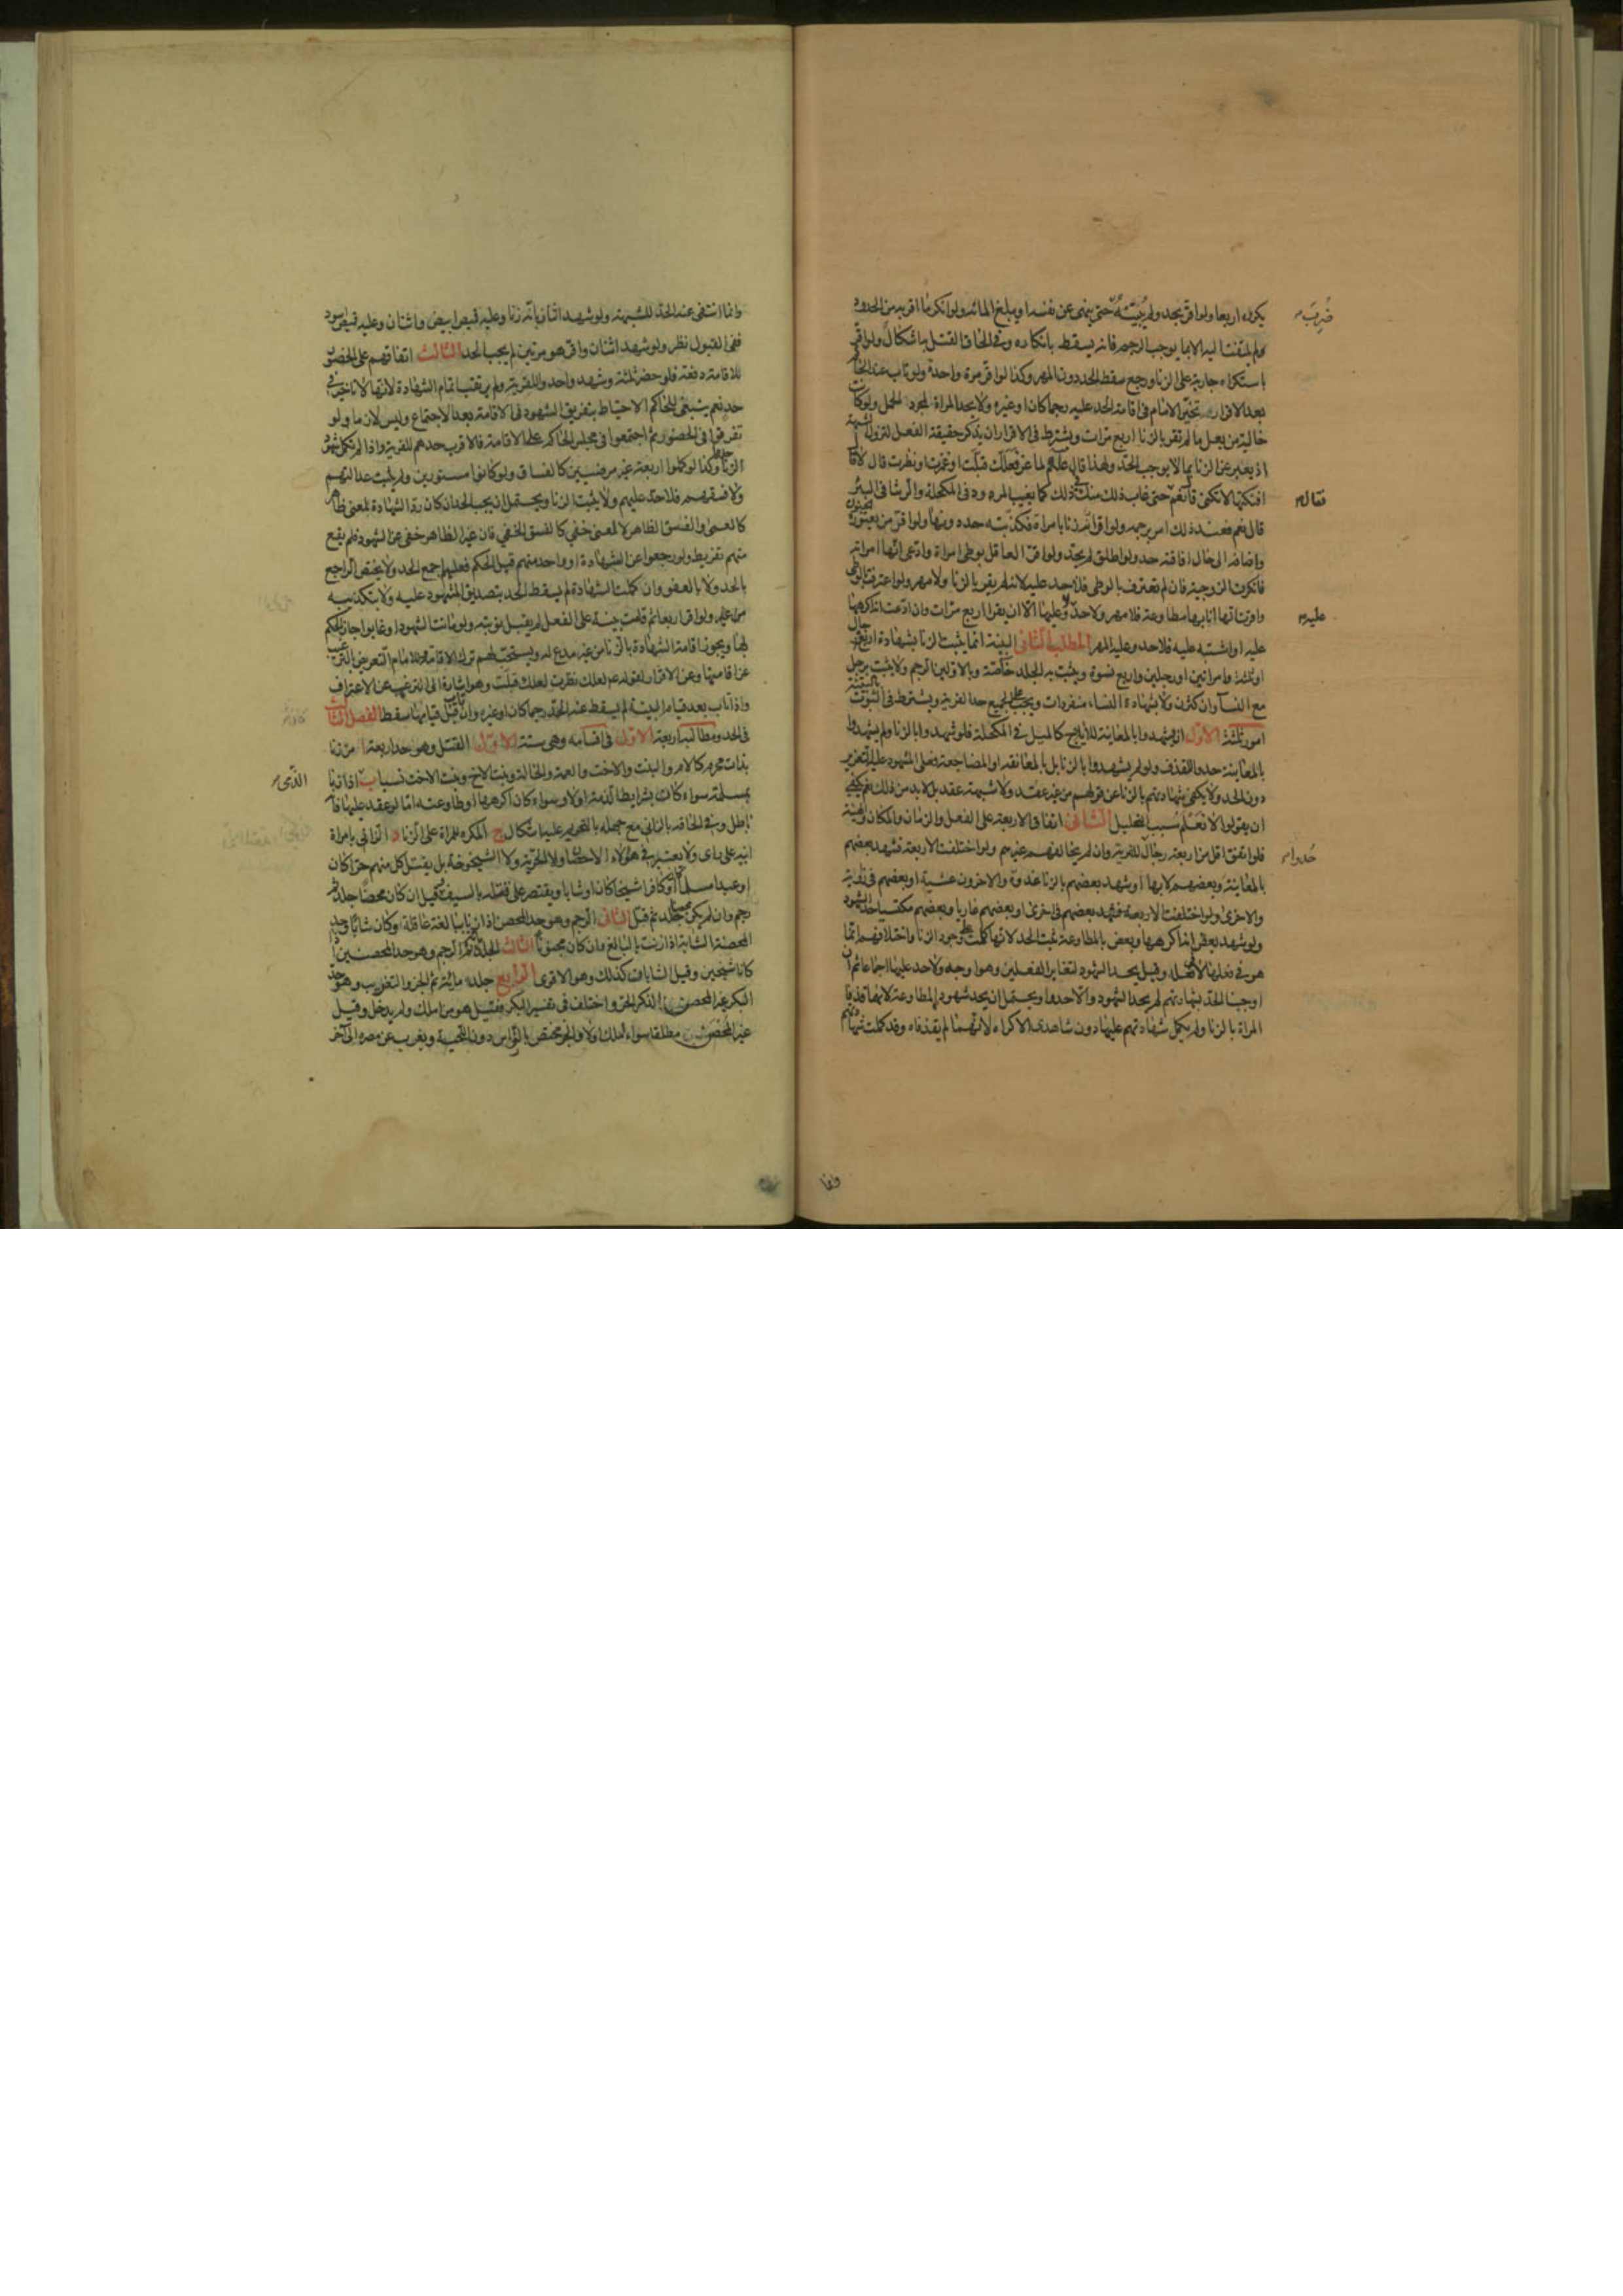 يكرره اربعا ولو اقر بحد ولم يبينه حتى ينهى عن نفسه او يبلغ المائة ولو انكر ما اقر به من الحدود
ضرب
لم يلتفت اليه الا بما يوجب الرجم فانه يسقط بانكاره وفى الحاق القتل به اشكال ولو اقر
باستكراه جارية على الزنا ورجع سقط الحد دون المهر وكذا لو اقر مرة واحدة ولو تاب عند الحاكم
بعد الاقرار تخير الامام فى اقامة الحد عليه رجما كان او غيره ولا يحد المراة لمجرد الحمل ولو كانت
خالية من بعل ما لم تقر بالزنا اربع مرات ويشترط فى الاقرار ان يذكر حقيقة الفعل لتزول الشبهة
اذ يعبر عن الزنا بما لا يوجب الحد ولهذا قال لماعز لعلك قبلت او غمزت او نظرت قال لا قال
افنكتها لا تكنى قال نعم حتى غاب ذلك منك فى ذلك كما يغيب المرود فى المكحلة والرشا فى البئر
فقال
قال نعم فعند ذلك امر برجمه ولو اقر انه زنا بامراة فكذبته حد دونها ولو اقر من يعتوره الجنون
واضافه الى حال افاقته حد ولو اطلق لم يحد ولو اقر العاقل بوطى امراة وادعى انها امراته
فانكرت الزوجية فان لم تعترف بالوطى فلا حد عليه لانه لم يقر بالزنا ولا مهر ولو اعترفت بالوطى
واقرت انها زنا بها مطاوعة فلا مهر ولا حد عليه ولا عليها الا ان يقرا اربع مرات وان ادعت انه اكرهها
عليه
عليه او اشتبه عليه فلا حد وعليه المهر المطلب الثانى البينة انما يثبت الزنا بشهادة اربعة رجال
او ثلثة وامراتين او رجلين واربع نسوة ويثبت به الجلد خاصة وبالاولين الرجم ولا يثبت برجل
مع النسآ وان كثرن ولا بشهادة النساء منفردات ويجب على الجميع حد الفرية ويشترط فى الثبوت بالبينة
امور ثلثة الاول ان يشهدوا بالمعاينة للايلاج كالميل فى المكحلة فلو شهدوا بالزنا ولم يشهدوا
بالمعاينة حدوا للقذف ولو لم يشهدوا بالزنا بل بالمعانقة او المضاجعة فعلى المشهود عليه التعزير
دون الحد ولا يكفى شهادتهم بالزنا عن قولهم من غير عقد ولا شبهة عقد بل لا بد من ذلك نعم يكفى
ان يقولوا لا نعلم سبب التحليل الثانى اتفاق الاربعة على الفعل والزمان والمكان والهيئة
فلو اتفق اقل من اربعة رجال للفرية وان لم يخالفهم غيرهم ولو اختلفت الاربعة فشهد بعضهم
حدوا
بالمعاينة وبعضهم لا بها او شهد بعضهم بالزنا غدوة والاخرون عشية او بعضهم فى زاوية
والاخرى ولو اختلفت الاربعة فشهد بعضهم فى اخرى او بعضهم عاريا وبعضهم مكتسيا حد الشهود
ولو شهد بعض انه اكرهها وبعض بالمطاوعة ثبت الحد لانها كملت على وجود الزنا واختلافهم انما
هو فى فعلها لا فعله وقيل يحد الشهود لتغاير الفعلين وهو اوجه ولا حد عليها اجماعا ثم ان
اوجبنا الحد بشهادتهم لم يحد الشهود والا حدوا ويحتمل ان يحد شهود المطاوعة لانهما قذفا
المراة بالزنا ولم يكمل شهادتهم عليها دون شاهدى الاكراه لانهما لم يقذفاه وقد كملت شهادتهم
وانما
وانما انتفى عنه الحد للشبهة ولو شهد اثنان بانه زنا وعليه قميص ابيض واثنان وعليه قميص اسود
ففى القبول نظر ولو شهد اثنان واقر هو مرتين لم يجب الحد الثالث اتفاقهم على الحضور
للاقامة دفعة فلو حضر ثلثة وشهد واحد وللفرية ولم يرتقب اتمام الشهادة لانها لا تاخير فى
حد نعم ينبغى للحاكم الاحتياط بتفريق الشهود فى الاقامة بعد الاجتماع وليس لازما ولو
تفرقوا فى الحضور ثم اجتمعوا فى مجلس الحاكم على الاقامة فالاقرب حدهم للفرية واذا لم تكمل شهود
الزنا حدوا وكذا لو كملوا اربعة غير مرضيين كالفساق ولو كانوا مستورين ولم يثبت عدالتهم
ولا فسقهم فلا حد عليهم ولا يثبت الزنا ويحتمل ان يجب الحد ان كان رد الشهادة لمعنى ظاهر
كالعمى والفسق الظاهر لا لمعنى خفى كالفسق الخفى فان غير الظاهر خفى عن الشهود فلم يقع
منهم تفريط ولو رجعوا عن الشهادة او واحد منهم قبل الحكم فعليهم اجمع الحد ولا يختص الراجع
بالحد ولا بالعفو وان كملت الشهادة لم يسقط الحد بتصديق المشهود عليه ولا بتكذيبه
ولو اقر اربعا ثم قامت بينة على الفعل لم يقبل توبته ولو ماتت الشهود او غابوا جاز الحكم
بها ويجوز اقامة الشهادة بالزنا من غير مدع له ويستحب لهم ترك الاقامة وللامام التعريض بالترغيب
عن اقامتها وعن الاقرار لقوله عم لعلك نظرت لعلك قبلت وهو اشارة الى الترغيب عن الاعتراف
واذا تاب بعد قيام البينة لم يسقط عنه الحد رجما كان او غيره وان تاب قبل قيامها سقط الفصل الثالث
فى الحد ومطالبه اربعة الاول فى اقسامه وهى ستة الاول القتل وهو حد اربعة ا من زنا
بذات محرم كالام والبنت والاخت والعمة والخالة وبنت الاخ وبنت الاخت نسبا ب اذا زنا
الذمى
بمسلمة سواء كان بشرايط الذمة او لا وسواء كان اكرهها او طاوعته اما لو عقد عليها فانه
باطل وفى الحاقه بالزانى مع جهله بالتحريم عليه اشكال ج المكره للمراة على الزنا د الزانى بامراة
ابيه على راى ولا يعتبر فى هؤلاء الاحصان ولا الحرية ولا الشيخوخة بل يقتل كل منهم حرا كان
او عبدا مسلما كان او كافرا شيخا كان او شابا ويقتصر على قتله بالسيف وقيل ان كان محصنا جلد ثم
رجم وان لم يكن محصنا جلد ثم قتل الثانى الرجم وهو حد المحصن اذا زنا ببالغة عاقلة او كان شابا وحد
المحصنة الشابة اذا زنت بالبالغ وان كان مجنونا الثالث الجلد ثم الرجم وهو حد المحصنين اذا
كانا شيخين وقيل الشابان كذلك وهو الاقوى الرابع جلد مائة ثم الجز والتغريب وهو حد
البكر غير المحصن الذكر الحر واختلف فى تفسير البكر فقيل هو من املك ولم يدخل وقيل
غير المحصن مطلقا سواء املك اولا والجز مختص بالراس دون اللحية ويغرب عن مصره الى آخر